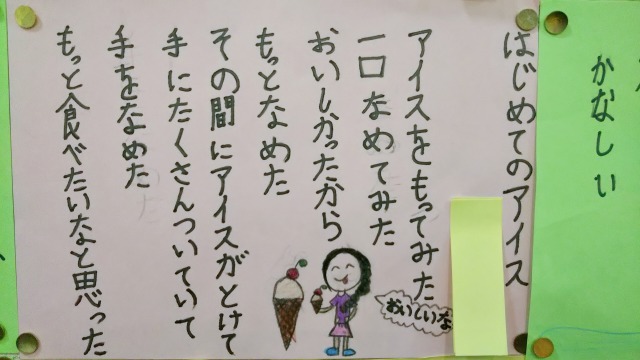 かなしい
はじめてのアイス
アイスをもってみた
一口なめてみた
おいしかったから
もっとなめた
その間にアイスがとけて
手にたくさんついていて
手をなめた
もっと食べたいなと思った
おいしいな